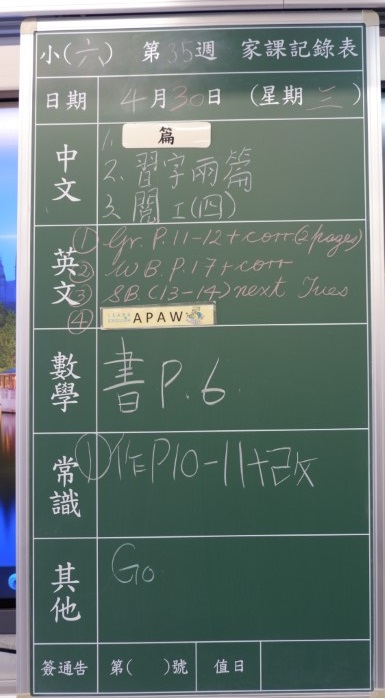 小(六) 第35週 家課記錄表
日期 4月30日 (星期三)
中文
1. 篇
2. 習字兩篇
3. 閱工(四)
英文
① Gr. P.11-12+corr(2pages)
② W.B. P.17+corr
③ SB. (13-14) next Tues
④ APAW
數學
書P.6
常識
① 作P10-11+改
其他
Go
簽通告 第( )號 值日